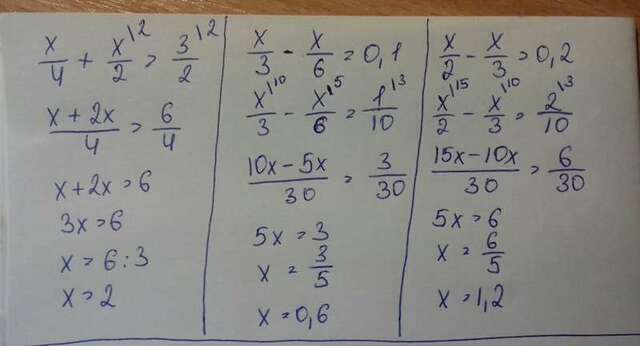 x/4 + x\2/2 = 3\2/2
x + 2x/4 = 6/4
x + 2x = 6
3x = 6
x = 6 : 3
x = 2
x/3 - x/6 = 0,1
x\10/3 - x\5/6 = 1\3/10
10x - 5x/30 = 3/30
5x = 3
x = 3/5
x = 0,6
x/2 - x/3 = 0,2
x\15/2 - x\10/3 = 2\3/10
15x - 10x/30 = 6/30
5x = 6
x = 6/5
x = 1,2